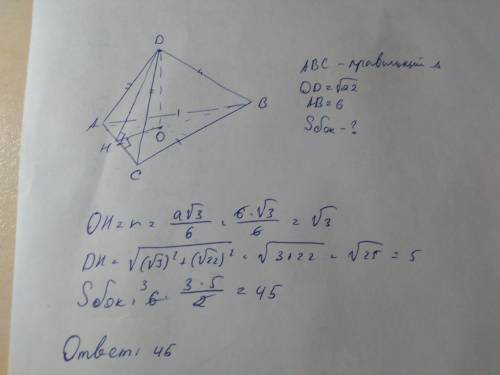 D
A
B
H
O
C
ABC - правильный Δ
OD = √22
AB = 6
Sбок - ?
OH = r = a√3/6 = 6·√3/6 = √3
DH = √((√3)² + (√22)²) = √(3+22) = √25 = 5
Sбок = 3 6 · 3·5/2 = 45
Ответ: 45